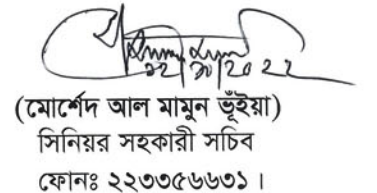 ১২/১০/২০২২
(মোর্শেদ আল মামুন ভূঁইয়া)
সিনিয়র সহকারী সচিব
ফোনঃ ২২৩৩৫৬৬৩১ ।